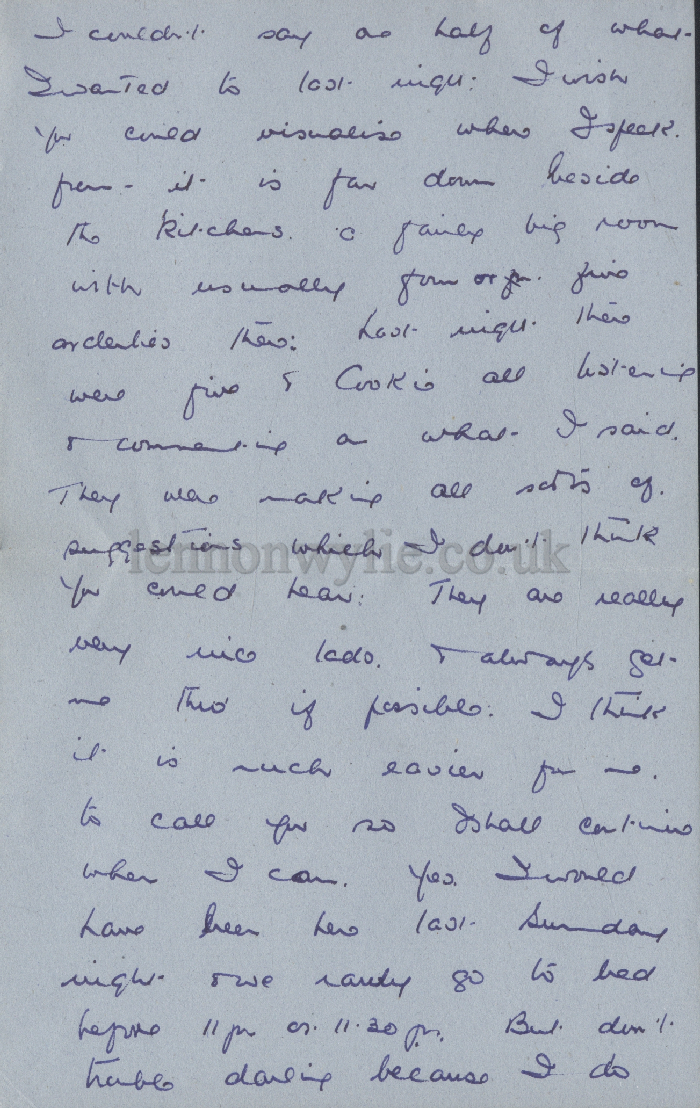 I couldn't say as half of what
I wanted to last night: I wish
you could visualise where I speak
from - it is far down beside
the kitchens. a fairly big room
with usually four or five
orderlies there: Last night there
were five & Cookie all listening
& commenting on what I said.
They were making all sorts of
suggestions which I don't think
you could hear: They are really
very nice lads. & always get
me thro' if possible: I think
it is much easier for me.
to call you so I shall continue
when I can. Yes. I would
have been here last Sunday
night & we rarely go to bed
before 11 pm or 11.30 pm. But don't
trouble darling because I do
lennonwylie.co.uk